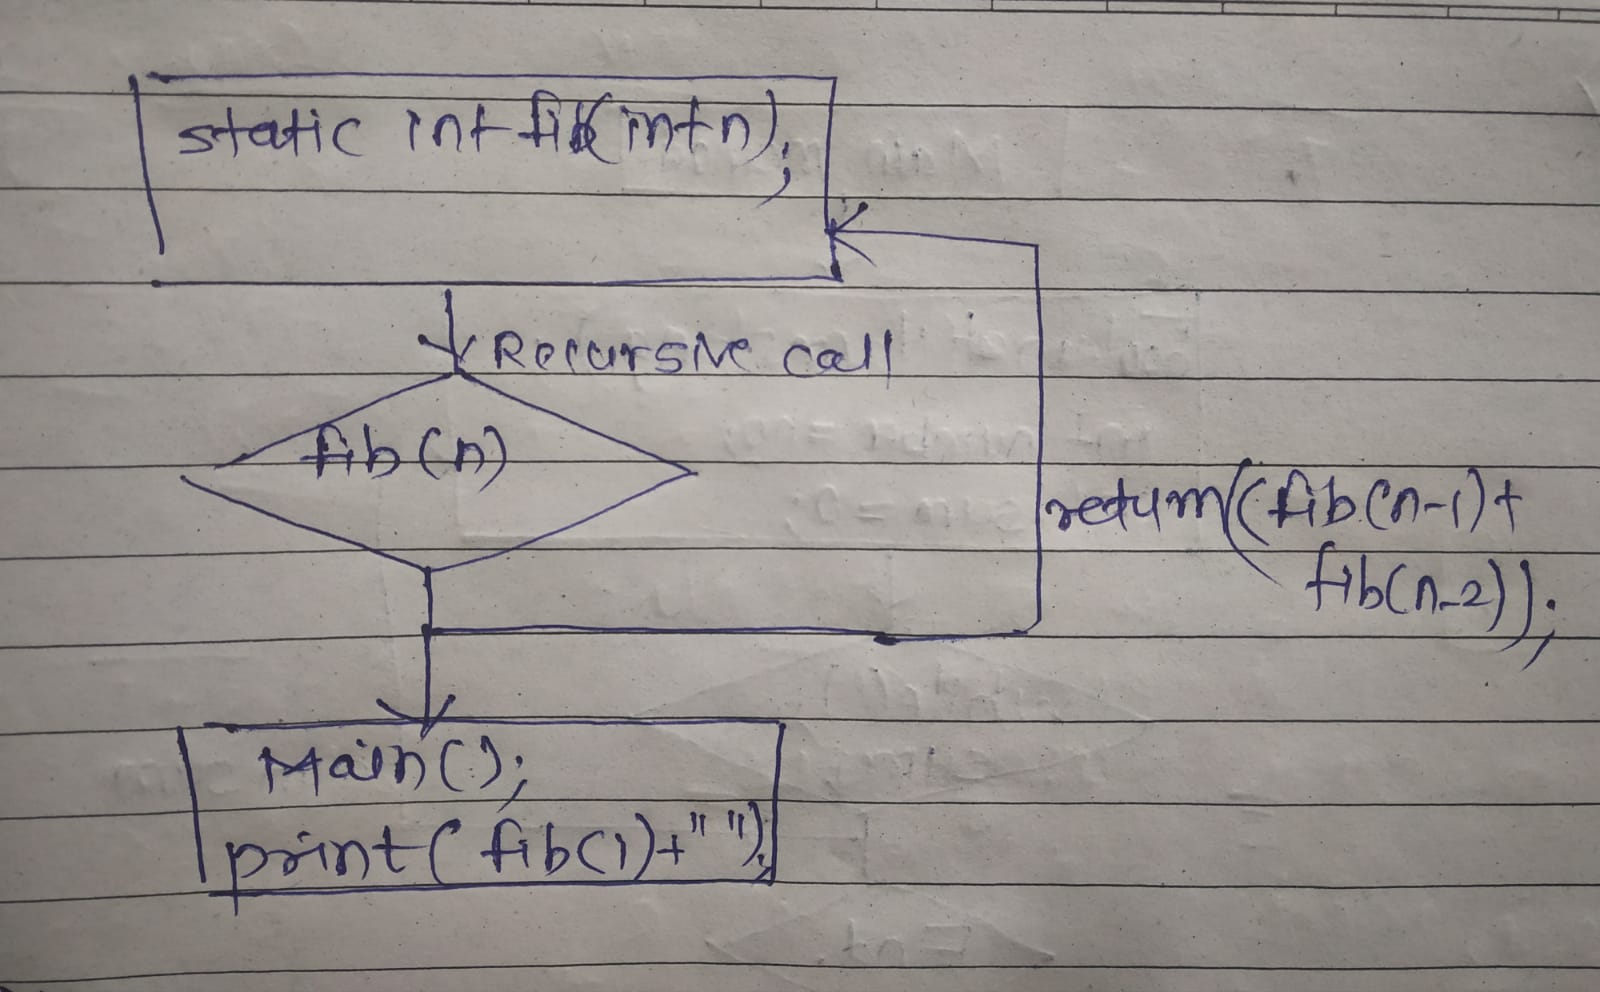 static int fib(int n);
Recursive call
fib (n)
return((fib(n-1)+
fib(n-2));
Main();
print( fib(i)+" ");